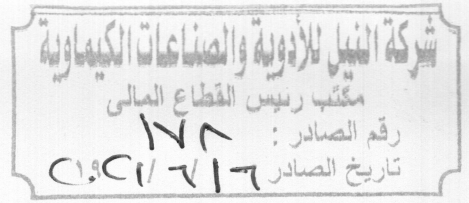 شركة النيل للأدوية والصناعات الكيماوية
مكتب رئيس القطاع المالى
رقم الصادر : ١٧٨
تاريخ الصادر ١٦ / ٦ /